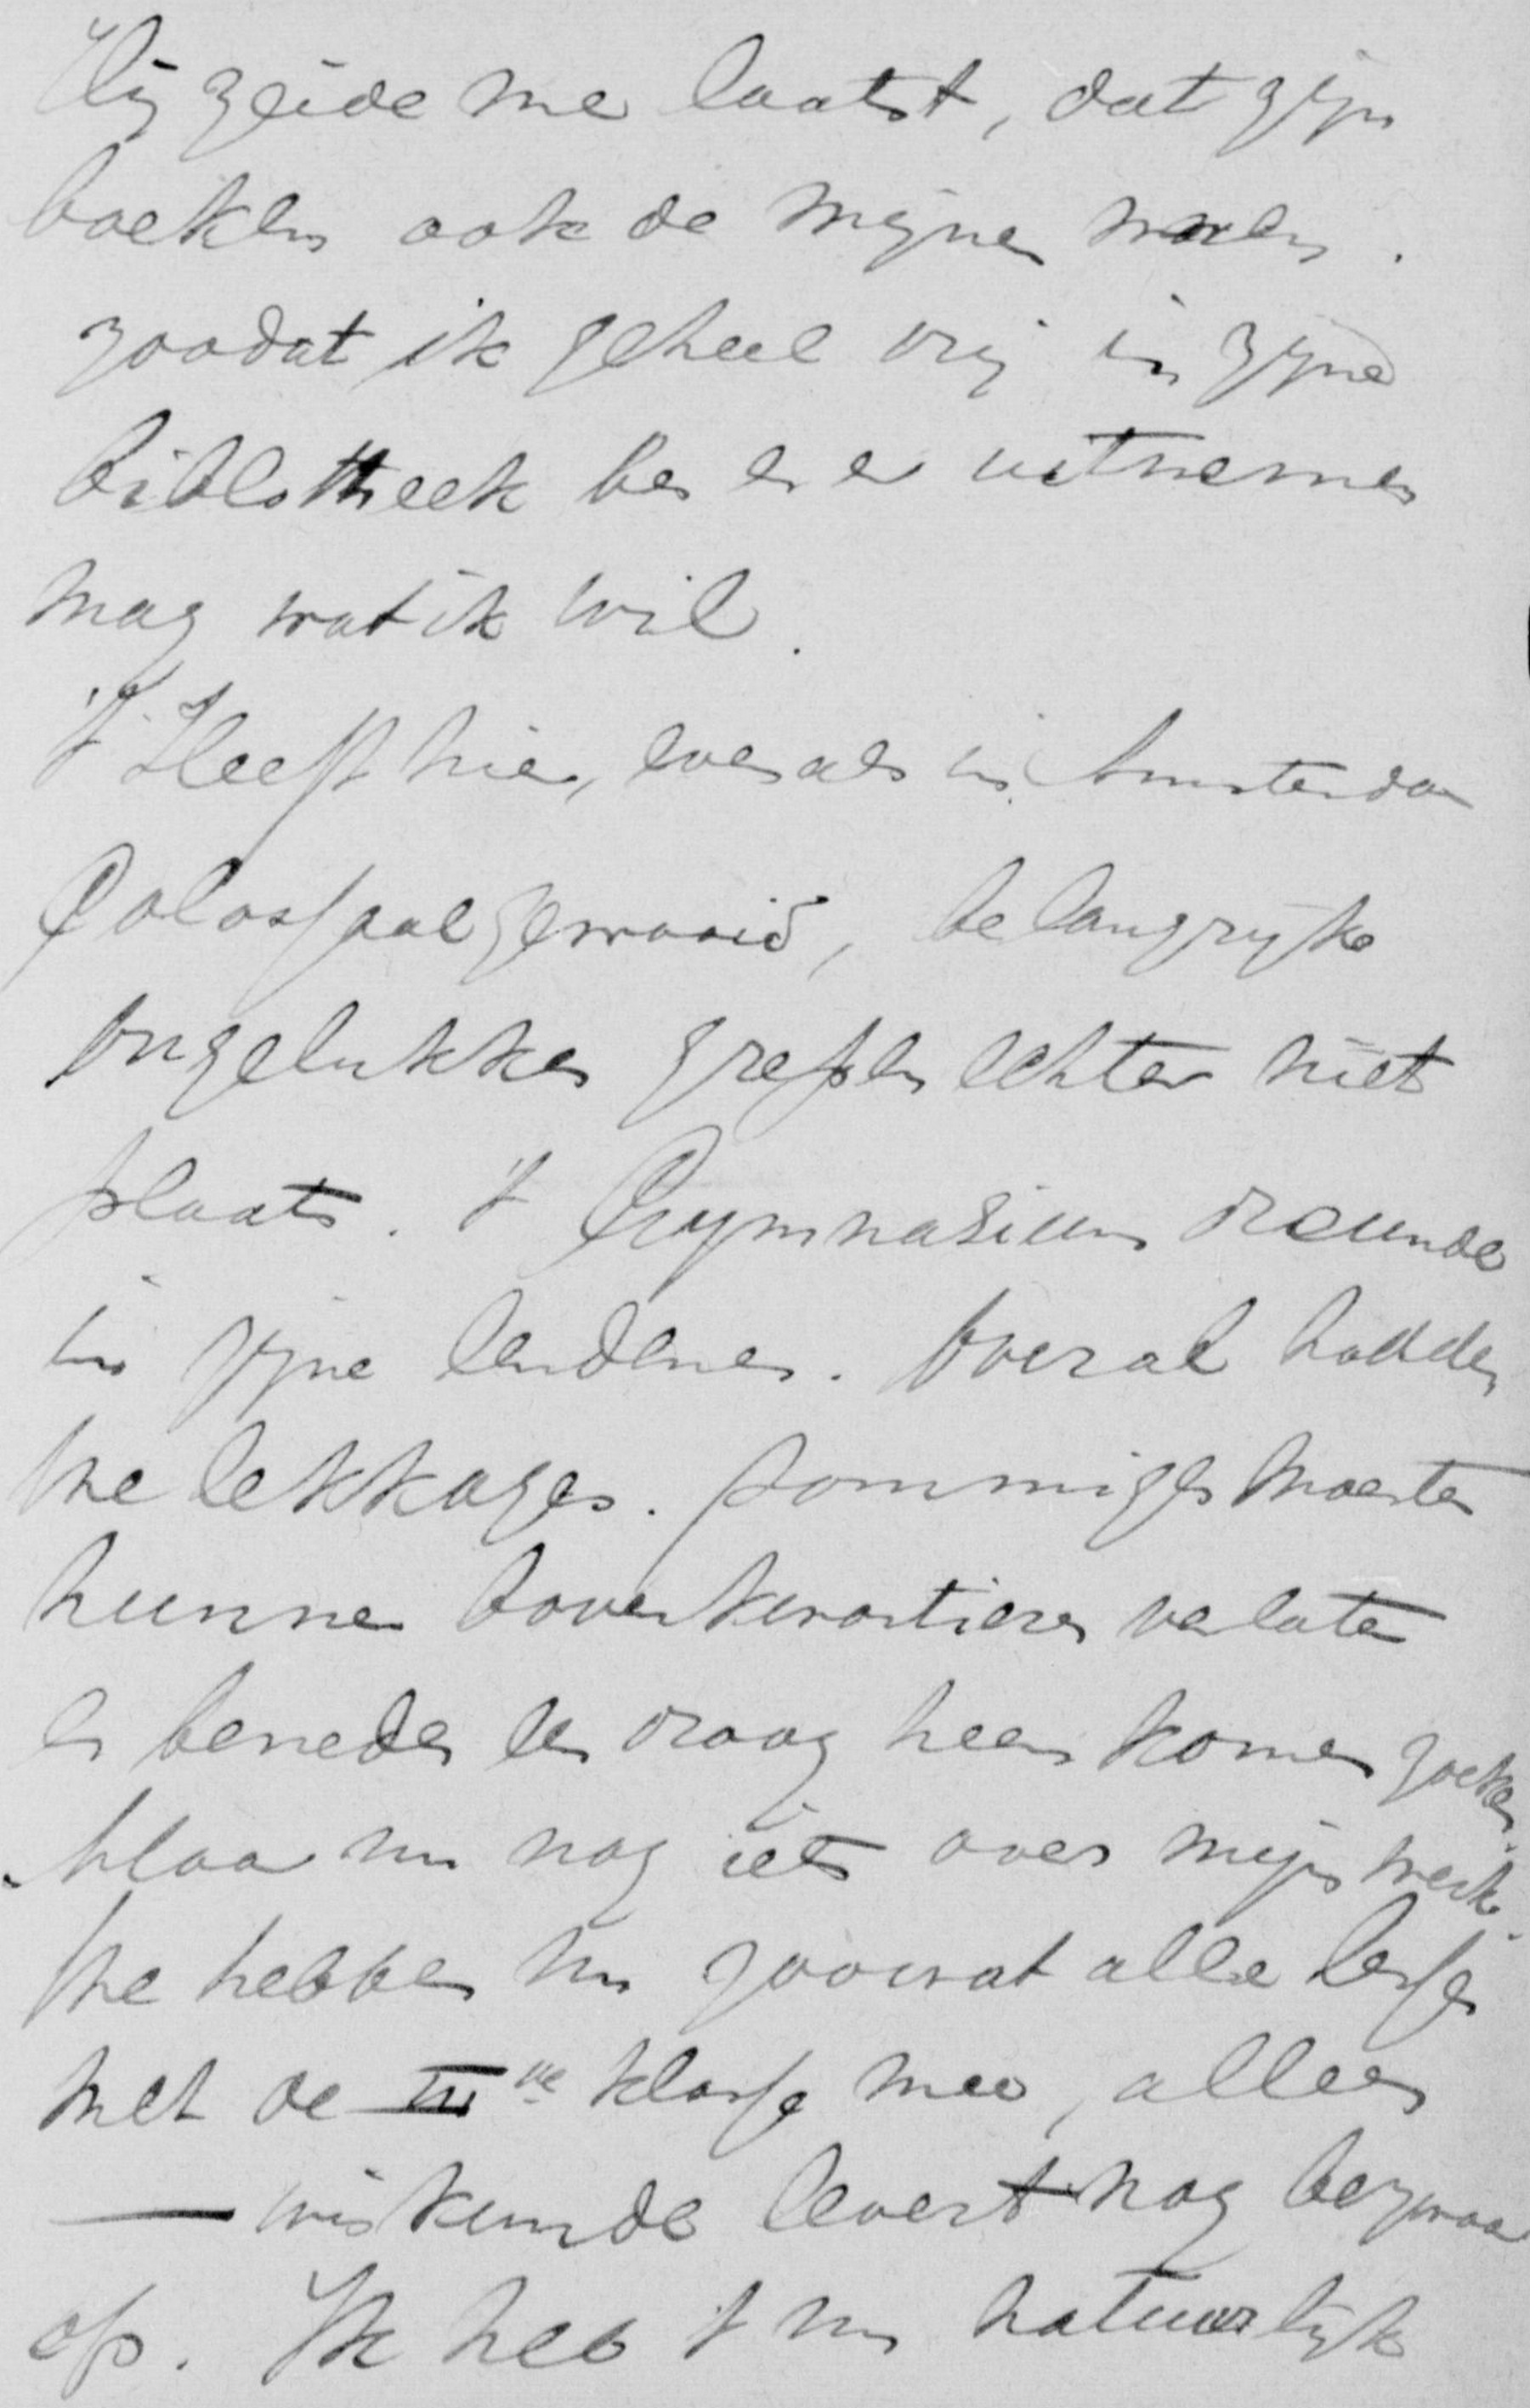 Hij zeide me laatst, dat zijn
boeken ook de mijne waren.
zoodat ik geheel vrij in zijne
bibliotheek ben en er uitnemen
mag wat ik wil.
't Heeft hier, evenals in Amsterdam
Colossaal gewaaid, belangrijke
ongelukken grepen echter niet
plaats. 't Gymnasium dreunde
in zijne lendenen. Overal hadden
we lekkages. Sommigen moesten
hunne bovenkwartieren verlaten
en beneden een droog heenkomen zoeken.
Maar nu nog iets over mijn werk.
We hebben nu zoowat alle lessen
met de IIIde klasse mee, alleen
— wiskunde levert nog bezwaar
op. Ik heb 't nu natuurlijk